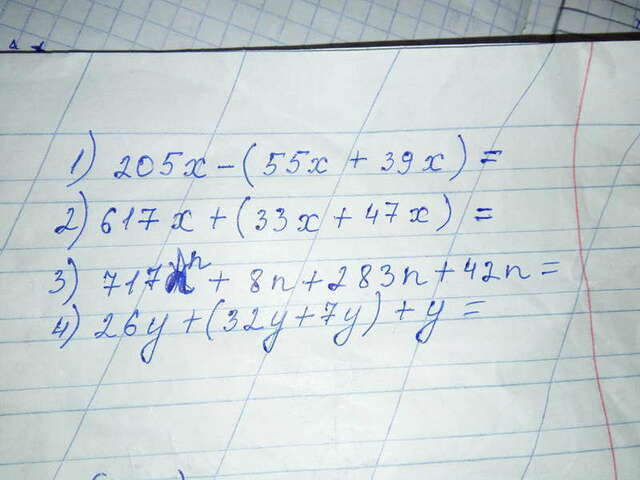 1) 205x - (55x + 39x) =
2) 617x + (33x + 47x) =
3) 717n + 8n + 283n + 42n =
4) 26y + (32y + 7y) + y =